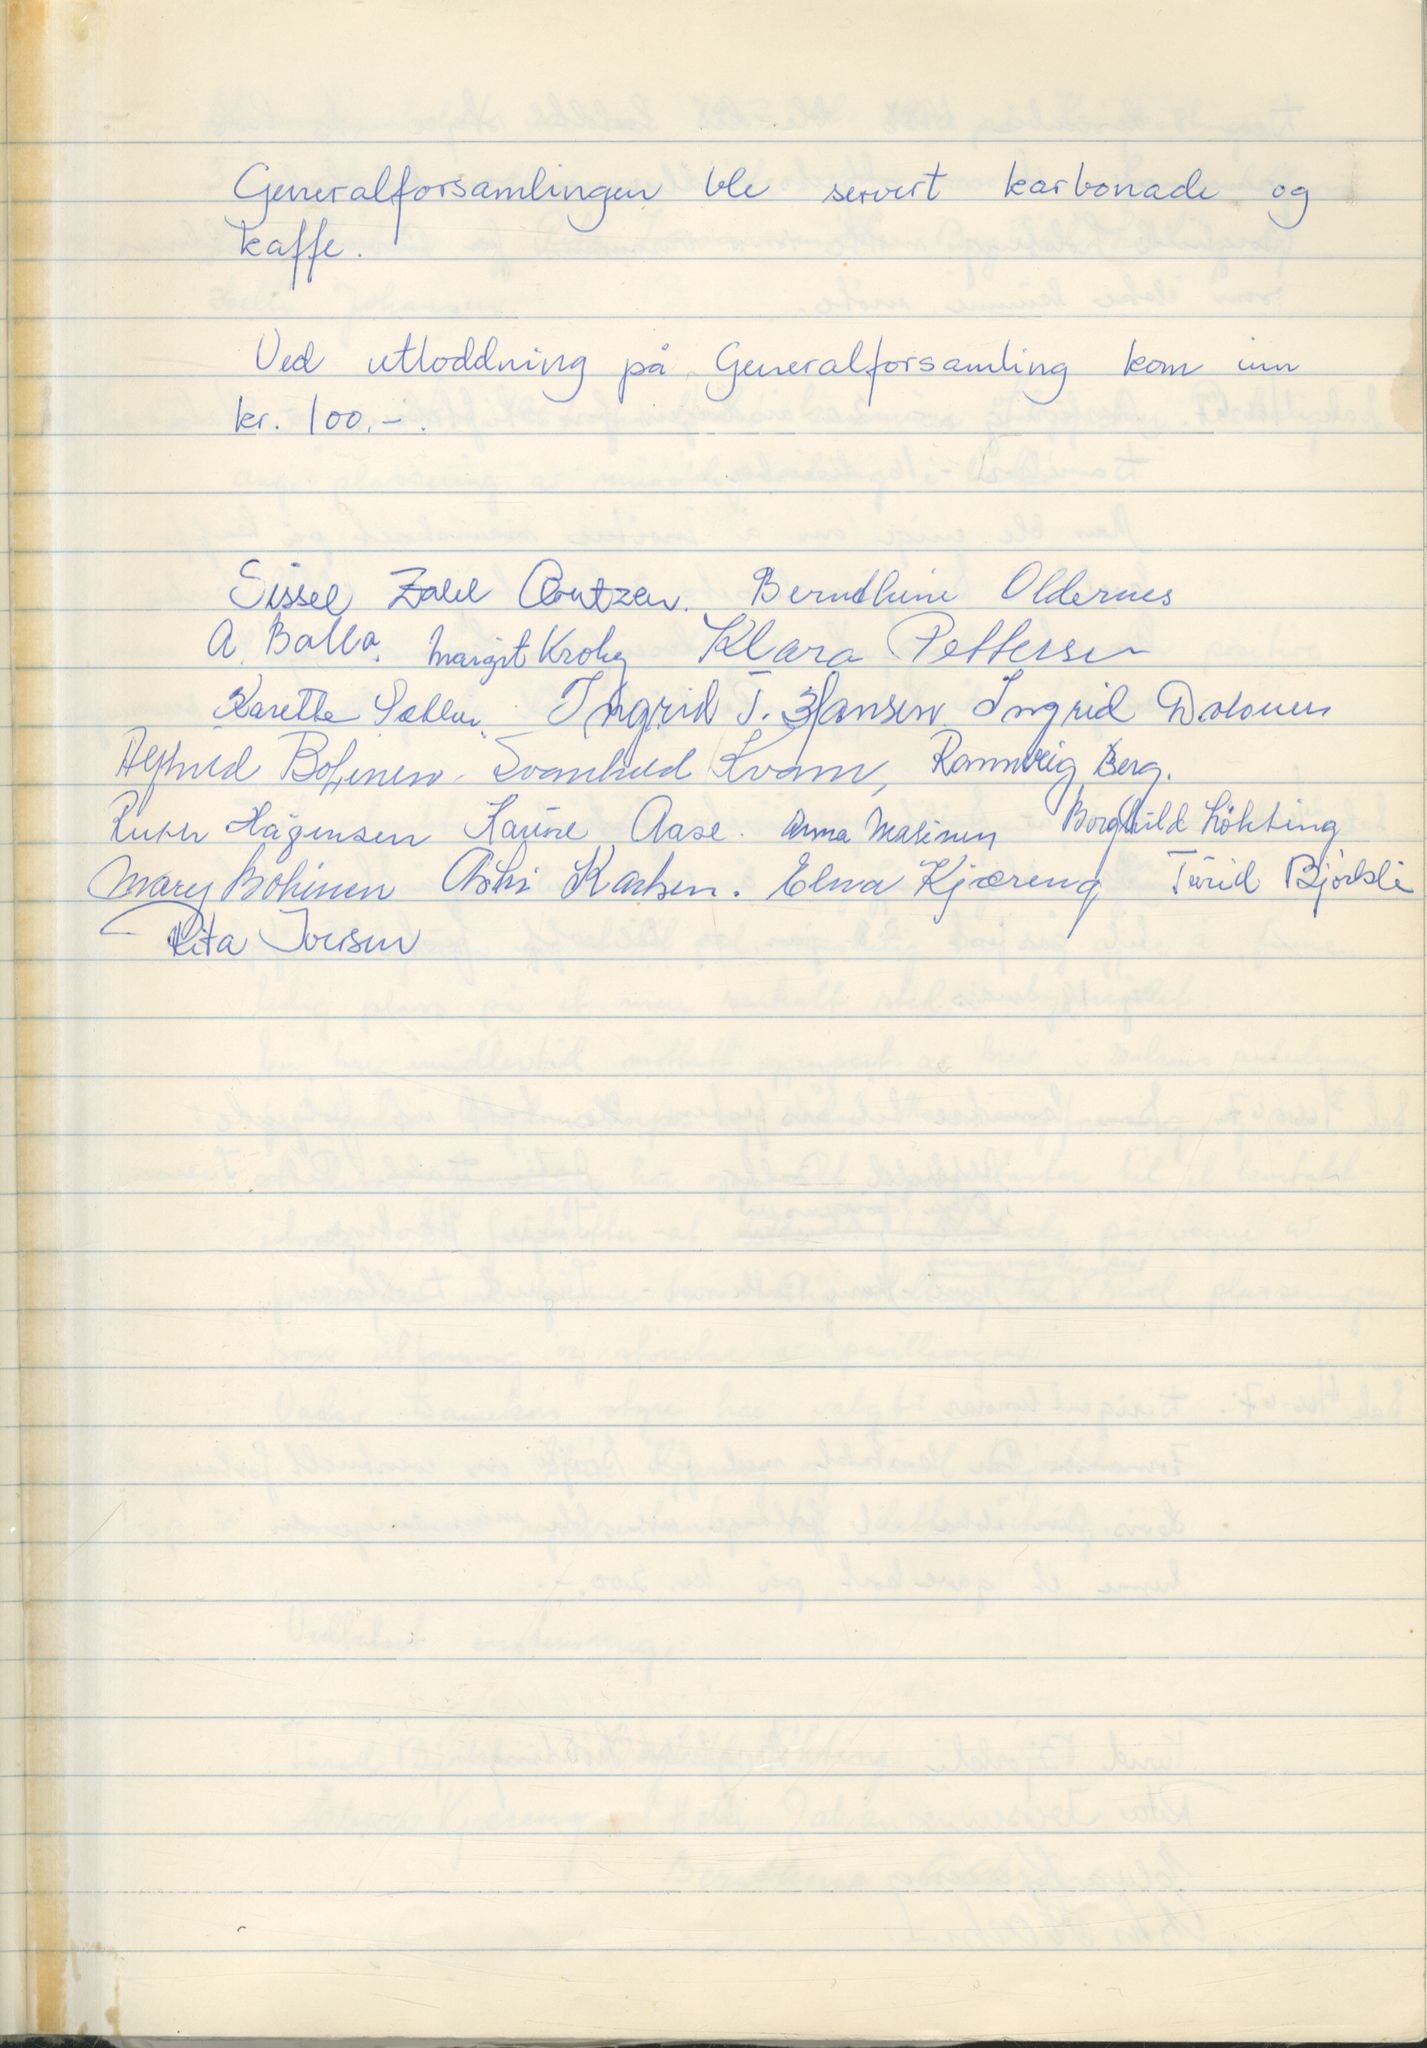 Generalforsamlingen ble servert karbonade og
kaffe.
Ved utloddning på Generalforsamling kom inn
kr. 100,-.
Sissel Zahl Berndhine Oldernes
A. Balla. Margit Krohg Klara Pettersen
Karette Ingrid T. Hansen Ingrid
Alfhild Bohinen. Svanhild Kvam, Rannveig Berg.
Ruth Hågensen Kåre Aase. Anna Masinen Borghild Løkting
Mary Bohinen Karlsen. Elna Kjæreng Turid Bjørkli
Rita Iversen